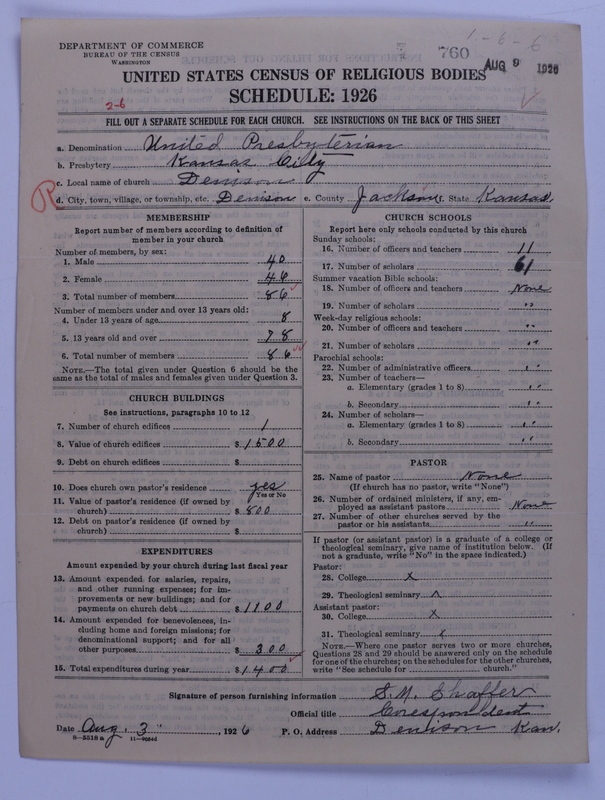 1-6-6
760
AUG 9 1926
DEPARTMENT OF COMMERCE
BUREAU OF THE CENSUS
WASHINGTON
UNITED STATES CENSUS OF RELIGIOUS BODIES
SCHEDULE: 1926
2-6
FILL OUT A SEPARATE SCHEDULE FOR EACH CHURCH. SEE INSTRUCTIONS ON THE BACK OF THIS SHEET
a. Denomination United Presbyterian
b. Presbytery Kansas City
c. Local name of church Denison
R
d. City, town, village, or township, etc. Denison e. County Jackson f. State Kansas.
MEMBERSHIP
Report number of members according to definition of
member in your church
Number of members, by sex:
1. Male 40
2. Female 46
3. Total number of members 86
Number of members under and over 13 years old:
4. Under 13 years of age 8
5. 13 years old and over 78
6. Total number of members 86
NOTE.—The total given under Question 6 should be the
same as the total of males and females given under Question 3.
CHURCH BUILDINGS
See instructions, paragraphs 10 to 12
7. Number of church edifices 1
8. Value of church edifices $ 1500
9. Debt on church edifices $
10. Does church own pastor's residence yes
Yes or No
11. Value of pastor's residence (if owned by
church) $ 800
12. Debt on pastor's residence (if owned by
church) $
EXPENDITURES
Amount expended by your church during last fiscal year
13. Amount expended for salaries, repairs,
and other running expenses; for im-
provements or new buildings; and for
payments on church debt $ 1100
14. Amount expended for benevolences, in-
cluding home and foreign missions; for
denominational support; and for all
other purposes $ 300
15. Total expenditures during year $ 1400
CHURCH SCHOOLS
Report here only schools conducted by this church
Sunday schools:
16. Number of officers and teachers 11
17. Number of scholars 61
Summer vacation Bible schools:
18. Number of officers and teachers None
19. Number of scholars "
Week-day religious schools:
20. Number of officers and teachers "
21. Number of scholars "
Parochial schools:
22. Number of administrative officers "
23. Number of teachers—
a. Elementary (grades 1 to 8) "
b. Secondary "
24. Number of scholars—
a. Elementary (grades 1 to 8) "
b. Secondary "
PASTOR
25. Name of pastor None
(If church has no pastor, write "None")
26. Number of ordained ministers, if any, em-
ployed as assistant pastors None
27. Number of other churches served by the
pastor or his assistants "
If pastor (or assistant pastor) is a graduate of a college or
theological seminary, give name of institution below. (If
not a graduate, write "No" in the space indicated.)
Pastor:
28. College x
29. Theological seminary x
Assistant pastor:
30. College x
31. Theological seminary x
NOTE.—Where one pastor serves two or more churches,
Questions 28 and 29 should be answered only on the schedule
for one of the churches; on the schedules for the other churches,
write "See schedule for church."
Signature of person furnishing information S.M. Shaffer
Official title Corespondent
Date Aug. 3", 1926 P. O. Address Denison Kan.
8—5518a 11—9064d